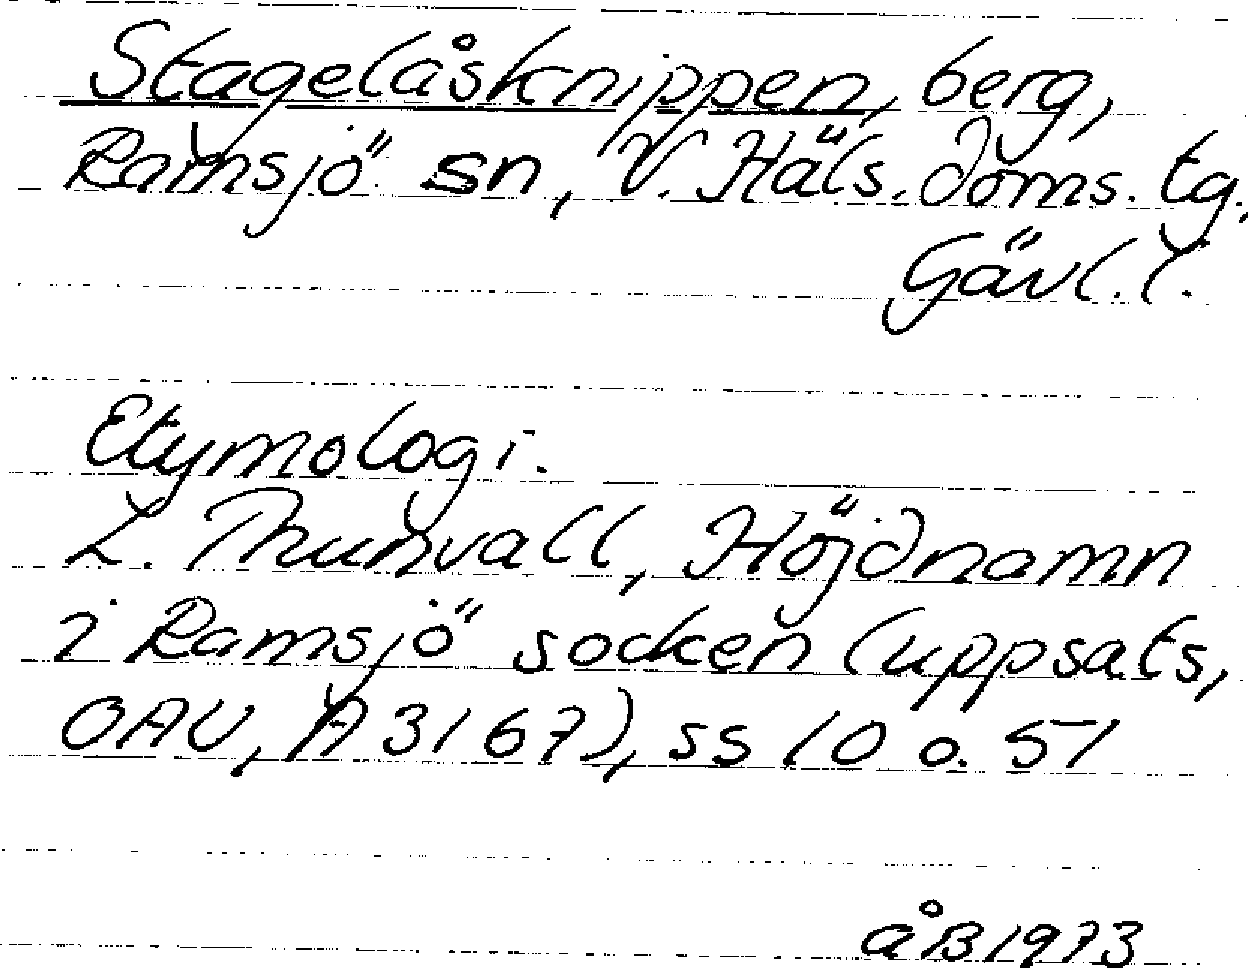 Stagelåsknippen, berg,
Ramsjö sn, V. Häls. doms. tg.,
Gävl. l.
Etymologi.
L. Thunvall, Höjdnamn
i Ramsjö socken (uppsats,
OAU, A 3167), ss 10 o. 51
åB 1973